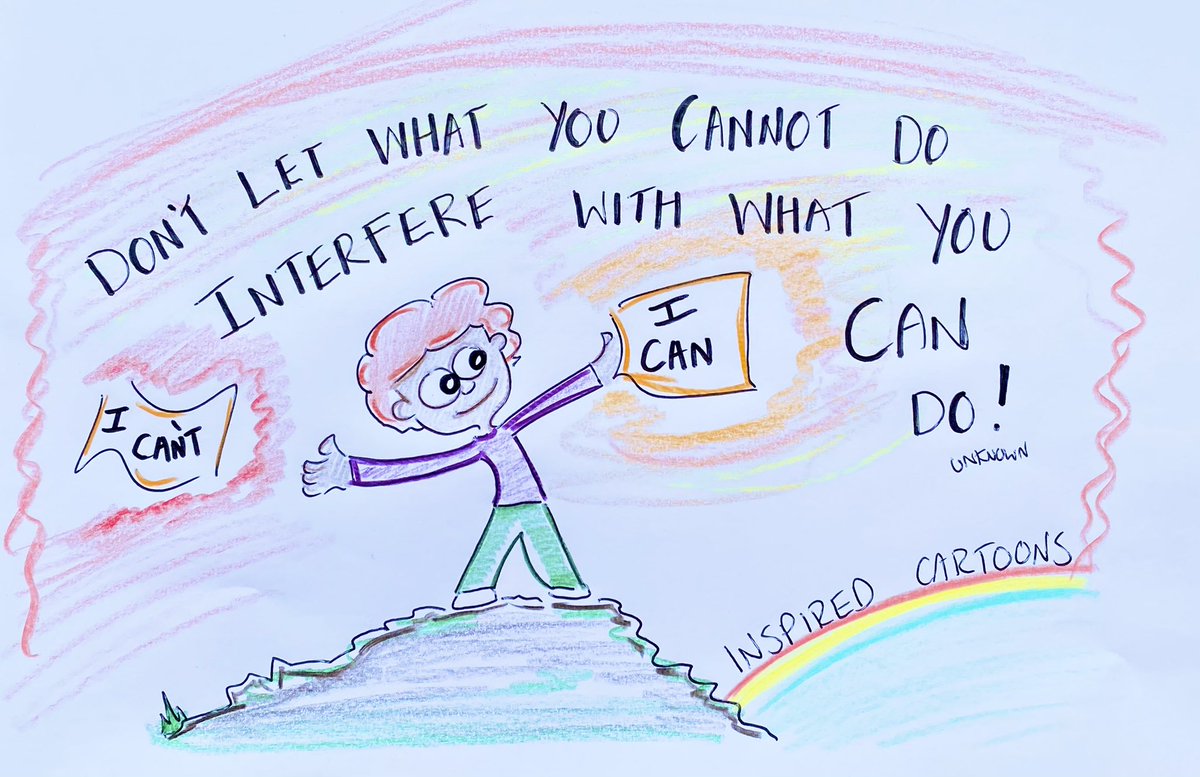 DON'T LET WHAT YOU CANNOT DO
INTERFERE WITH WHAT YOU
CAN
DO!
UNKNOWN
I
CAN
I
CAN'T
INSPIRED CARTOONS